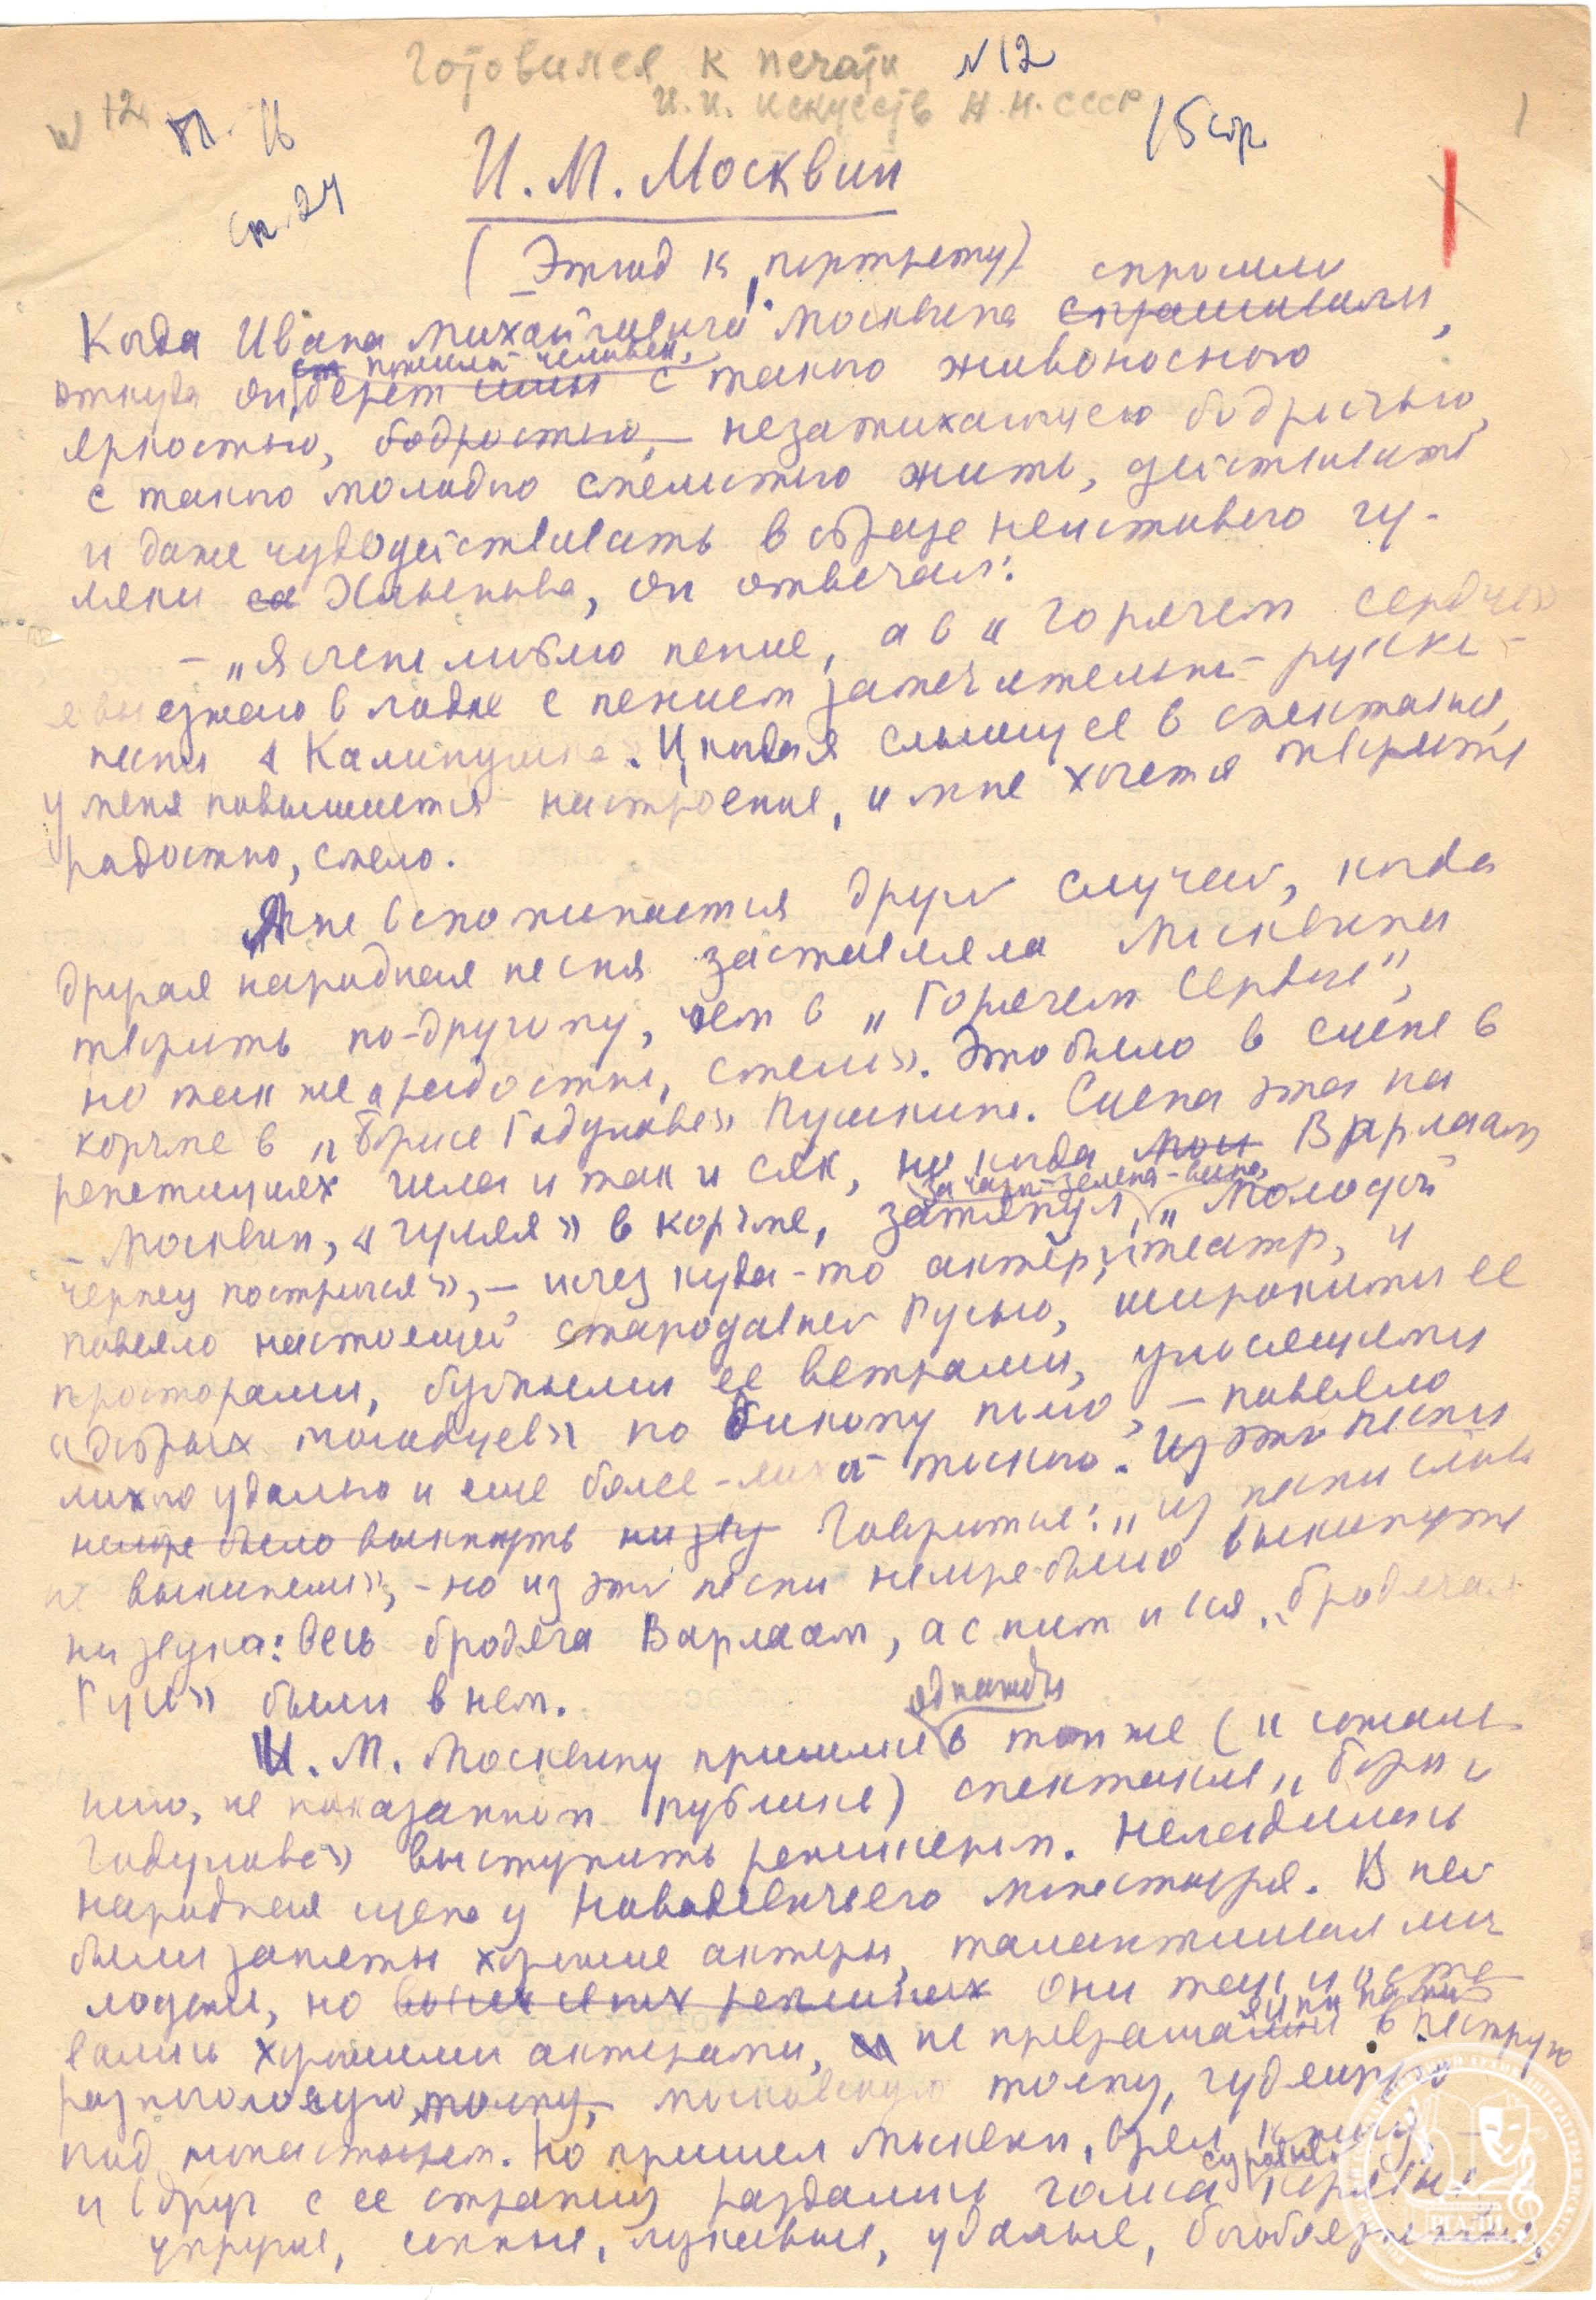 Готовился к печати №12
И. И. Искусств А. Н. СССР
№ 12
15 стр.
1
И. М. Москвин
(Этюд к портрету)
спросили
Когда Ивана Михайловича Москвина спрашивали,
пожилой человек,
откуда он берет силы с такою живоносною
яркостью, бодростью, незатихающею бодростью,
с такою молодою смелостью жить, действовать
и даже чудодействовать в образе неистового гу-
ляки Хлынова, он отвечал:
– „Я очень люблю пение, а в „Горячем сердце»
я выезжаю в лодке с пением замечательной русской
песни «Калинушка». И когда я слышу ее в спектакле,
у меня повышается настроение, и мне хочется творить
радостно, смело.
Мне вспоминается другой случай, когда
другая народная песня заставляла Москвина
творить по-другому, чем в „Горячем сердце",
но так же «радостно, смело». Это было в сцене в
корчме в „Борисе Годунове» Пушкина. Сцена эта на
репетициях шла и так и сяк, но когда мой Варлаам
– Москвин, «гуляя» в корчме, затянул „Молодой
чернец постригся», – исчез куда-то актер, театр, и
повеяло настоящей стародавней Русью, широкими ее
просторами, буйными ее ветрами, уносящими
«добрых молодцев» по дикому полю, – повеяло
лихою удалью и еще более – лихой тоскою. Из этой песни
нельзя было выкинуть ни звук Говорится: „из песни слова
не выкинешь», – но из этой песни нельзя было выкинуть
ни звука: весь бродяга Варлаам, а с ним и вся „бродячая
Русь» были в нем.
однажды
И. М. Москвину пришлось в том же (к сожале-
нию, не показанном публике) спектакле „Борис
Годунове» выступить режиссером. Не ладилась
народная сцена у Новодевичьего монастыря. В ней
были заняты хорошие актеры, талантливая мо-
лодежь, но они так и оста-
вались хорошими актерами, не превращаясь в пеструю
разноголосую толпу, московскую толпу, гудящую
под монастырем. Но пришел Москвин, взял книгу, –
суровые
и вдруг с ее страниц раздались голоса
упругие, сонные, лукавые, удалые, богобоязненные,
РГАЛИ